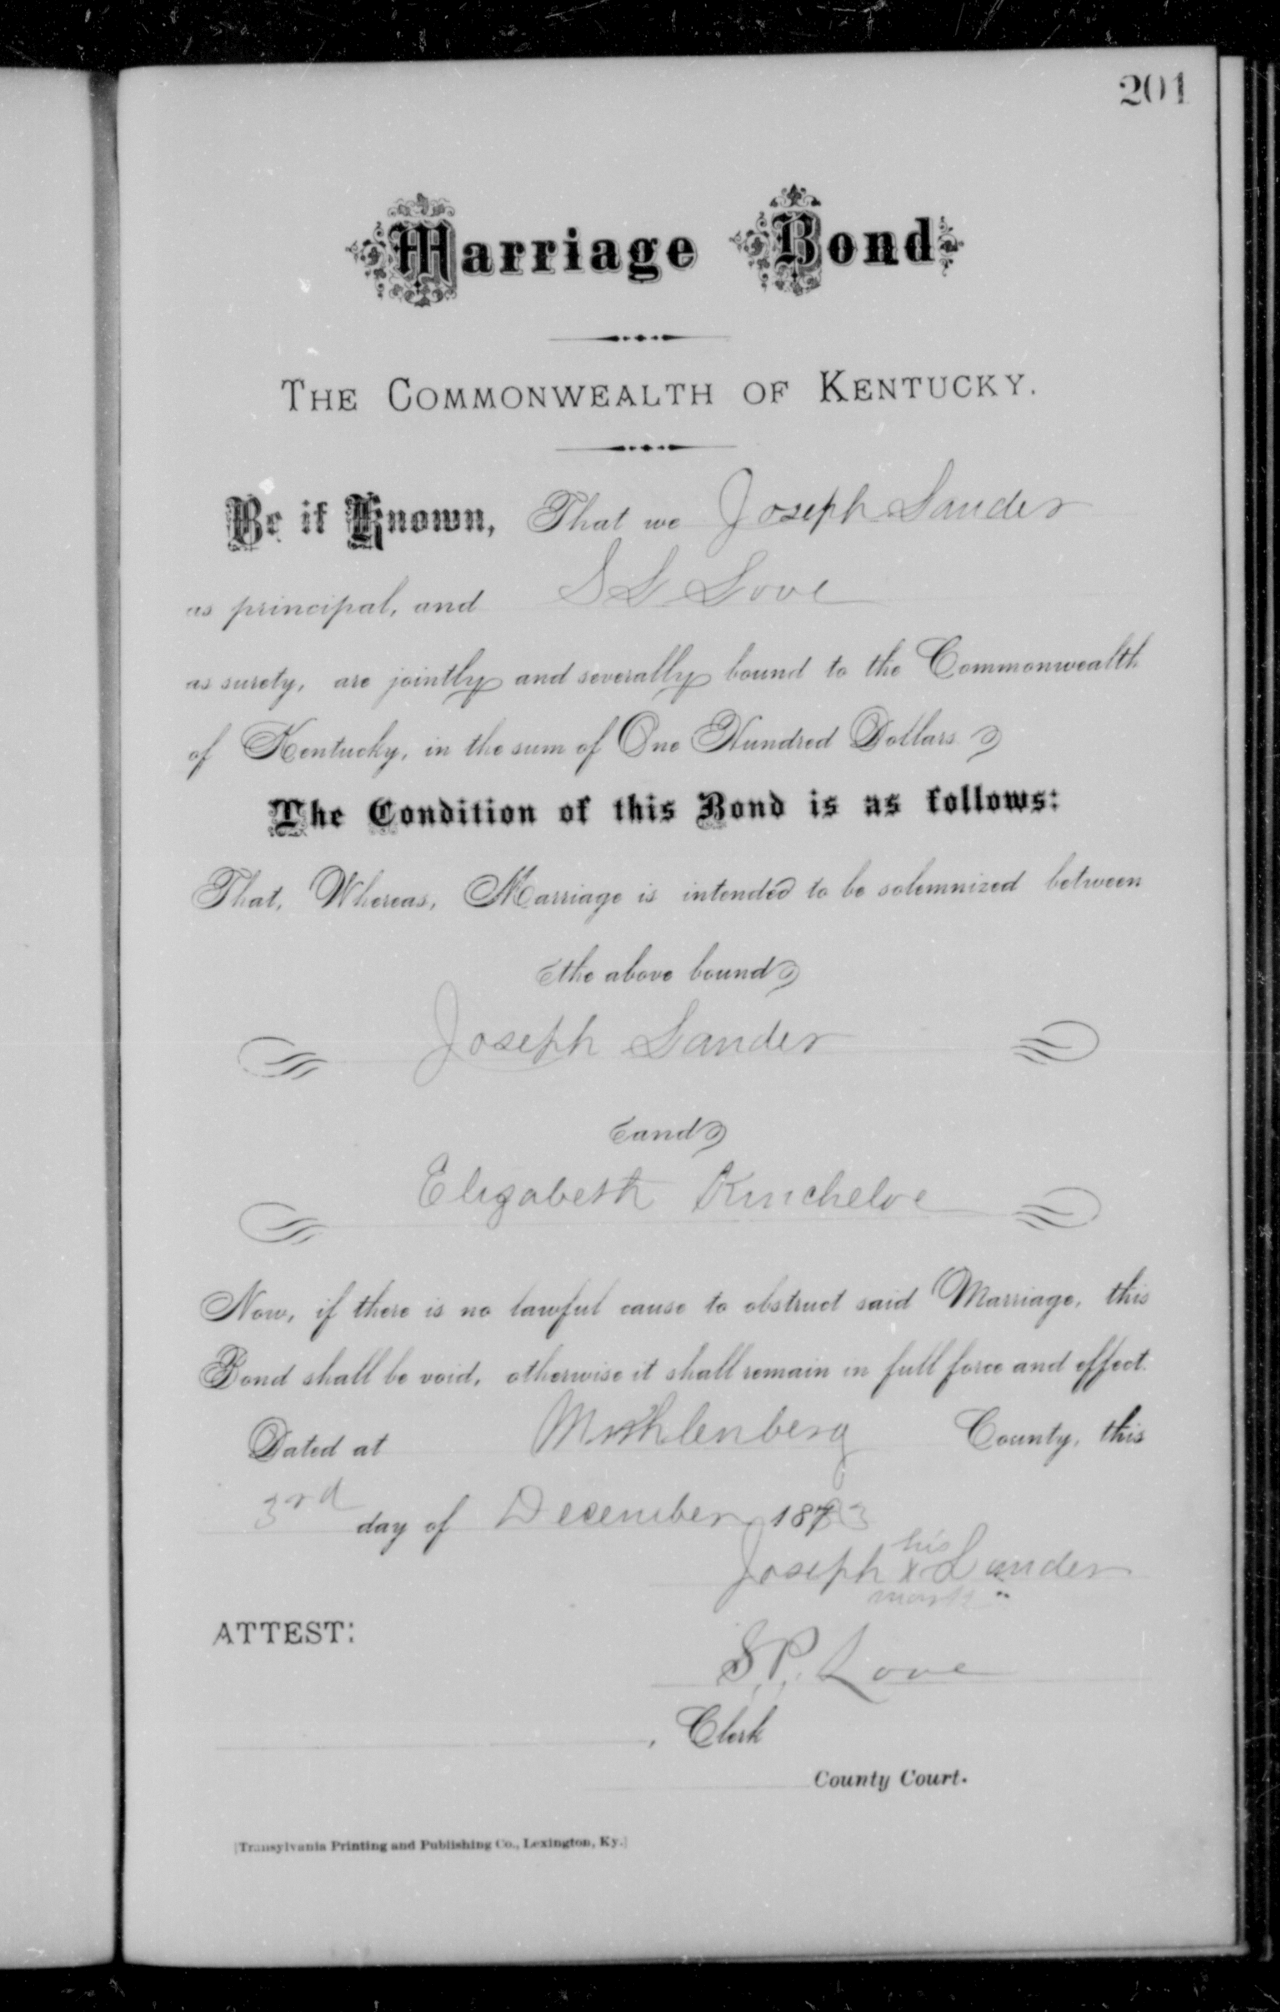 201
Marriage Bond
THE COMMONWEALTH OF KENTUCKY.
Be it Known, That we Joseph Lander
as principal, and S L Love
as surety, are jointly and severally bound to the Commonwealth
of Kentucky, in the sum of One Hundred Dollars.
The Condition of this Bond is as follows:
That, Whereas, Marriage is intended to be solemnized between
the above bound
Joseph Lander
and
Elizabeth Kincheloe
Now, if there is no lawful cause to obstruct said Marriage, this
Bond shall be void, otherwise it shall remain in full force and effect.
Dated at Muhlenberg County, this
3rd day of December 1883
his
Joseph x Lander
mark
ATTEST:
S.P. Love
, Clerk
County Court.
[Transylvania Printing and Publishing Co., Lexington, Ky.]